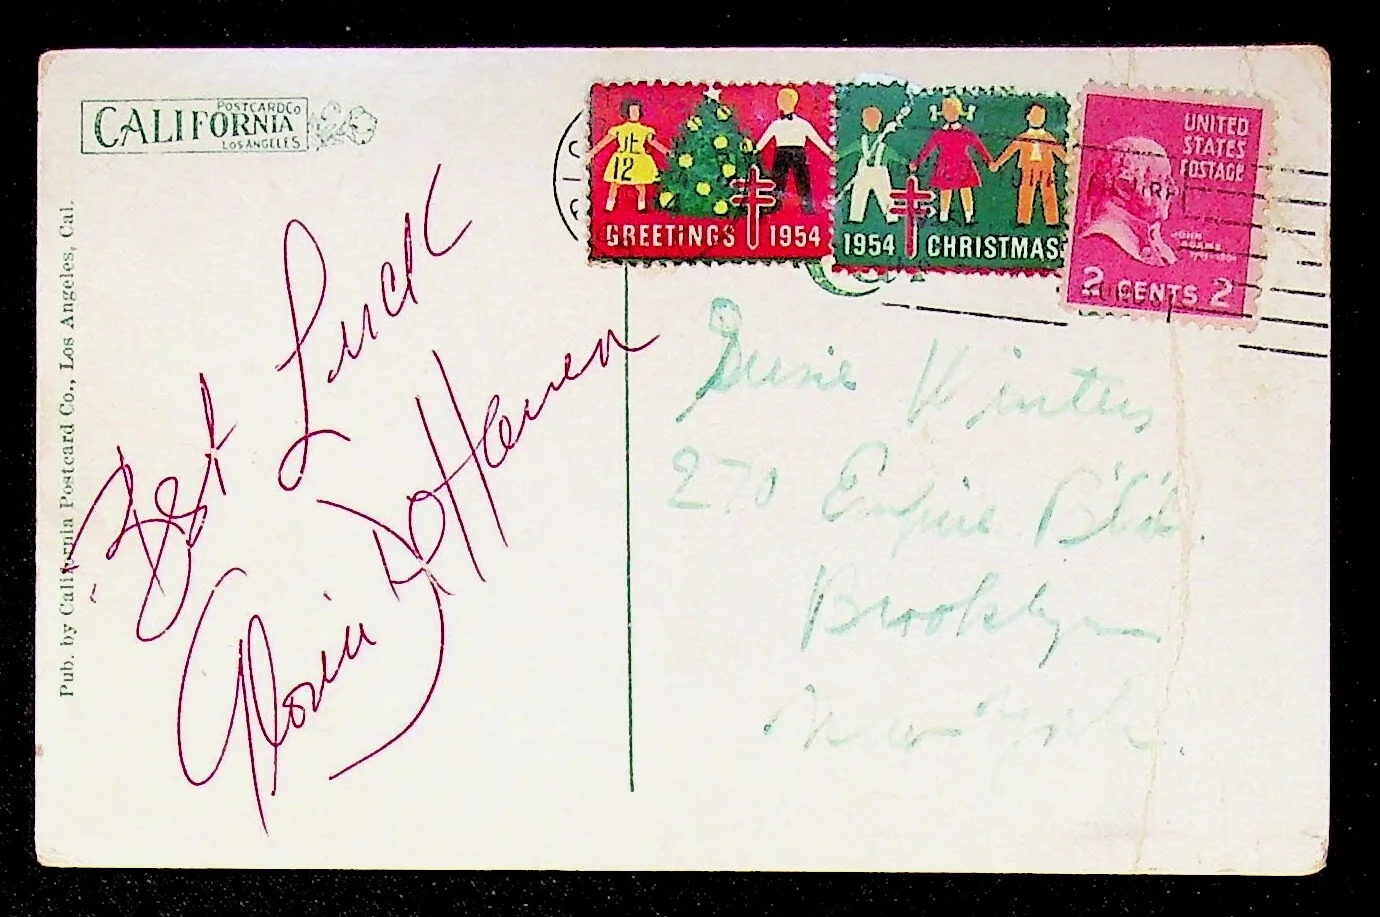 CALIFORNIA
POSTCARD Co
LOS ANGELES
Pub. by California Postcard Co., Los Angeles, Cal.
Best Luck
Gloria DeHaven
GREETINGS 1954
1954 CHRISTMAS
UNITED
STATES
POSTAGE
JOHN
ADAMS
2 CENTS 2
DE
12
Winters
270 Empire Blvd.
Brooklyn
New York.